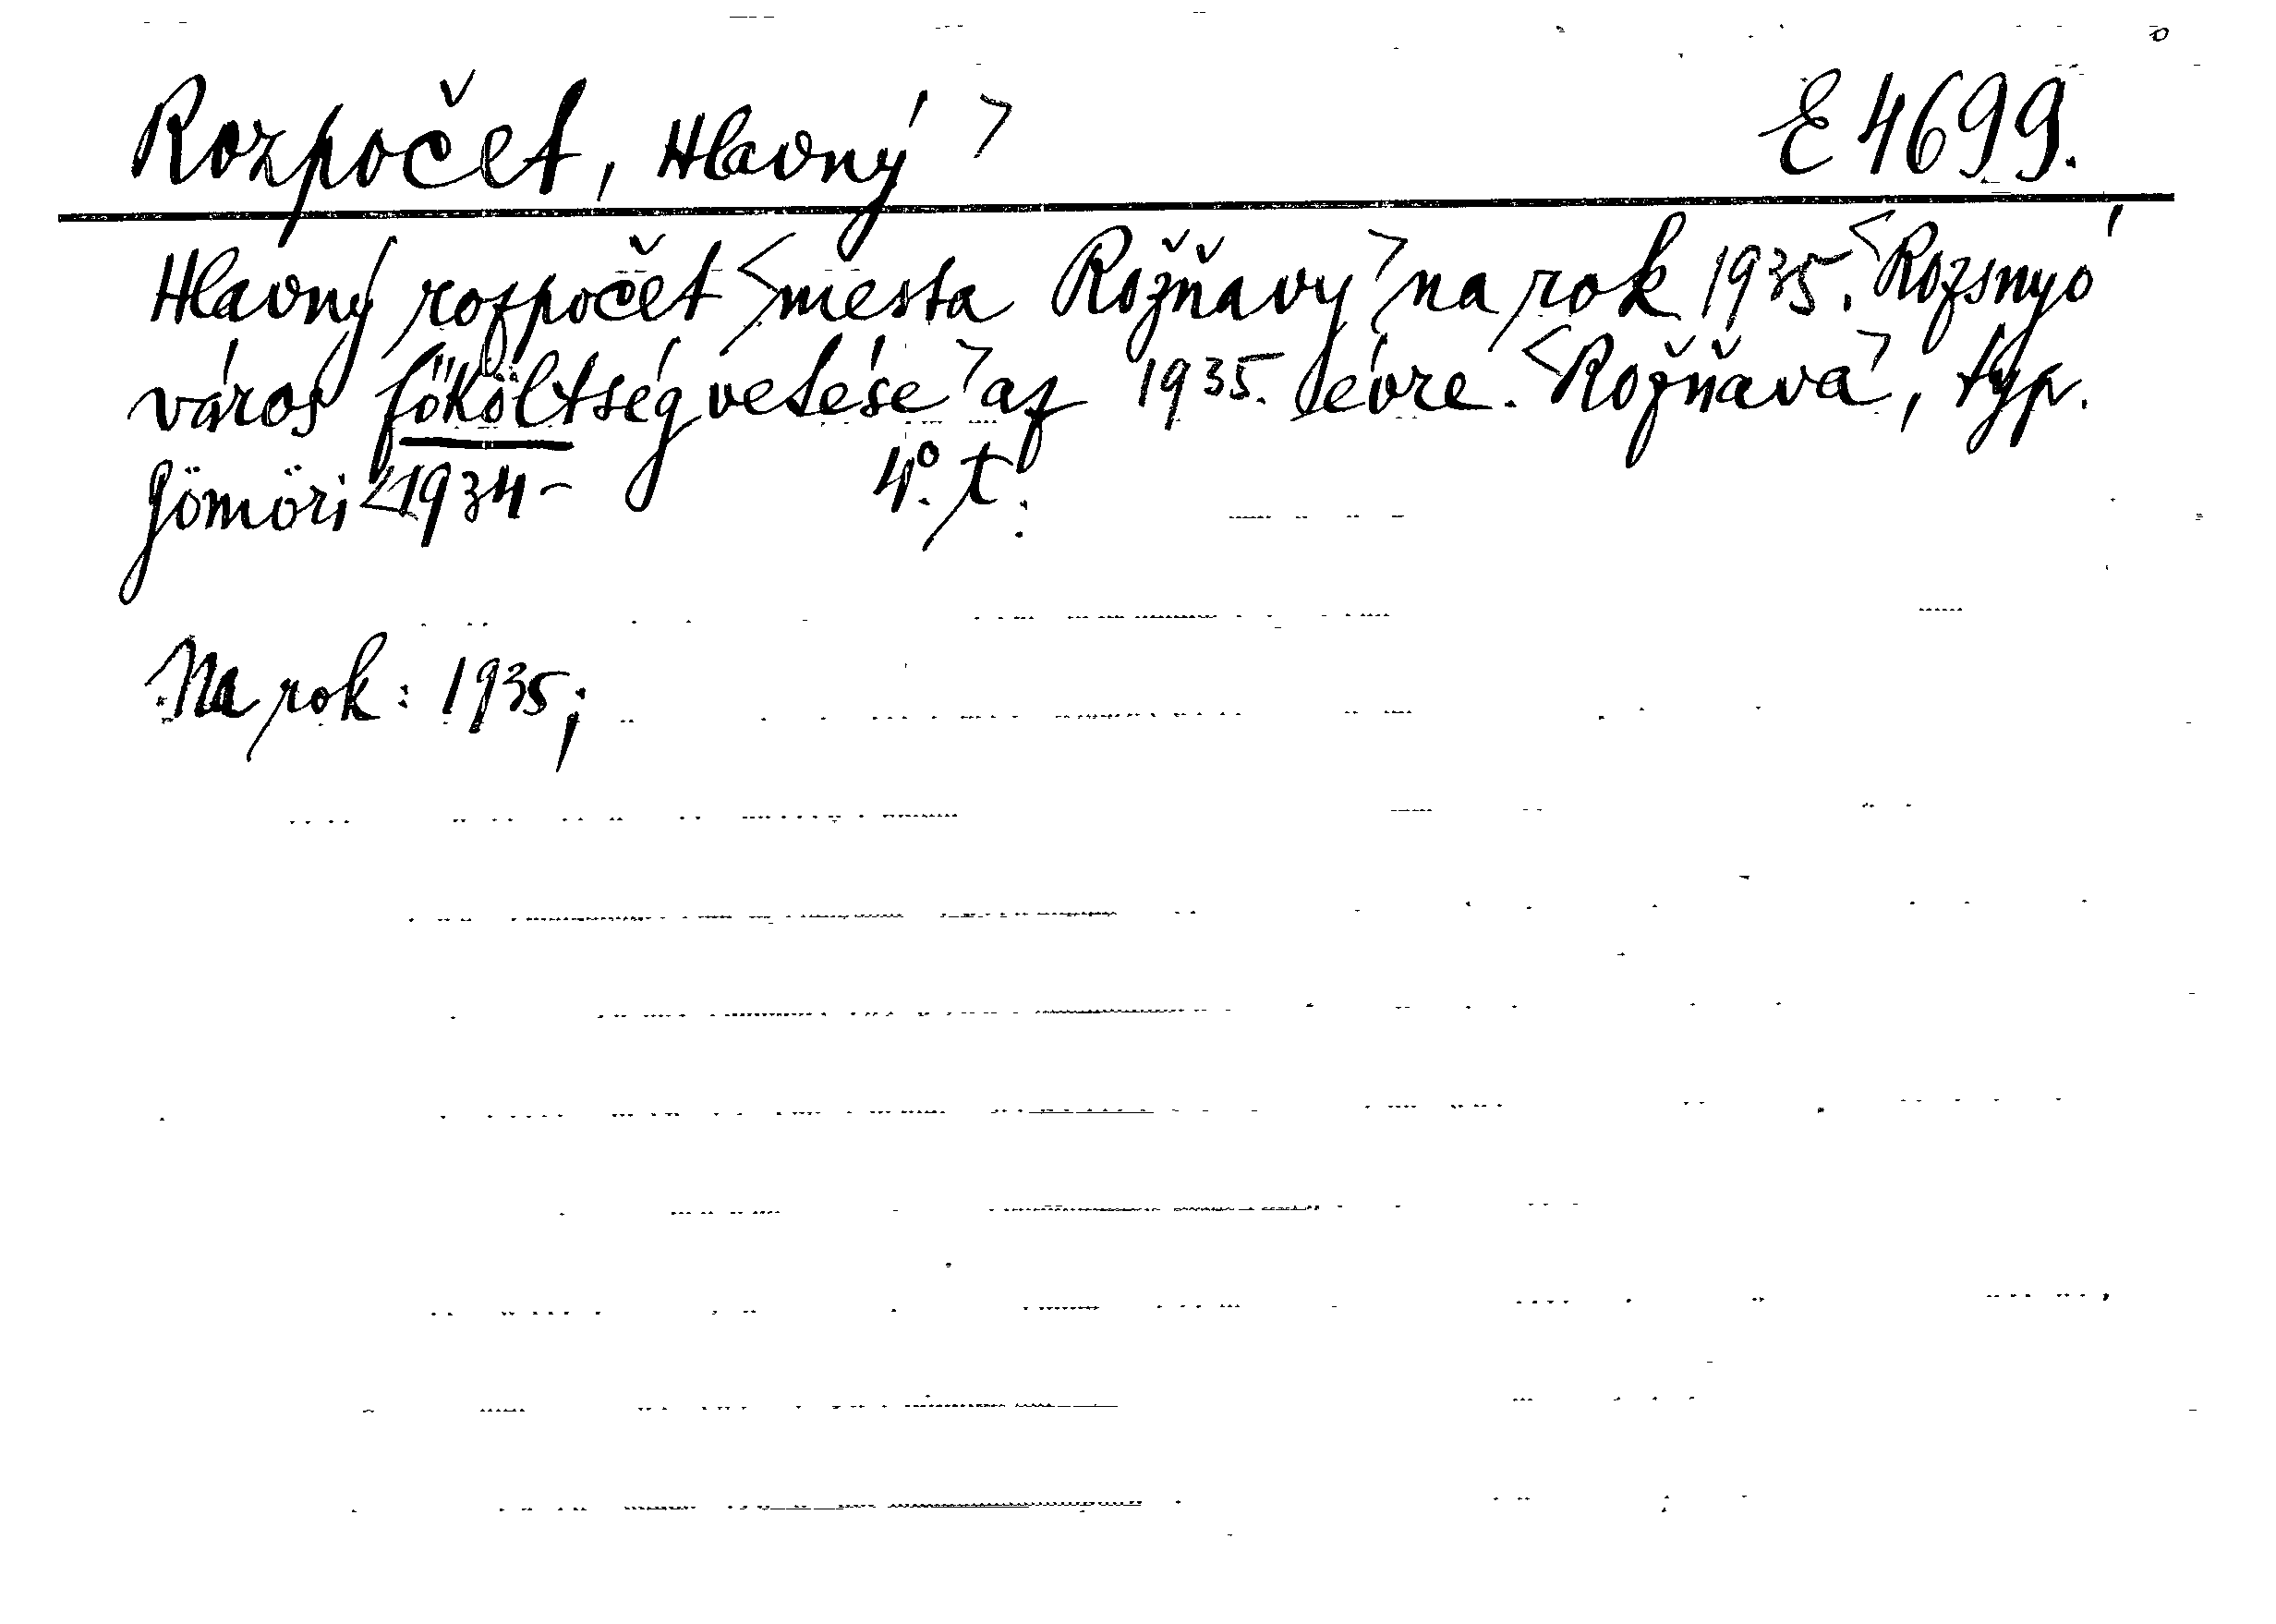 Rozpočet, Hlavný > E 4699.
Hlavný rozpočet <mesta Rožňavy> na rok 1935. <Rozsnyó
város főköltségvetése> az 1935. évre. <Rožňava>, typ.
Gömöri <1934- 4°. t.
Na rok: 1935;